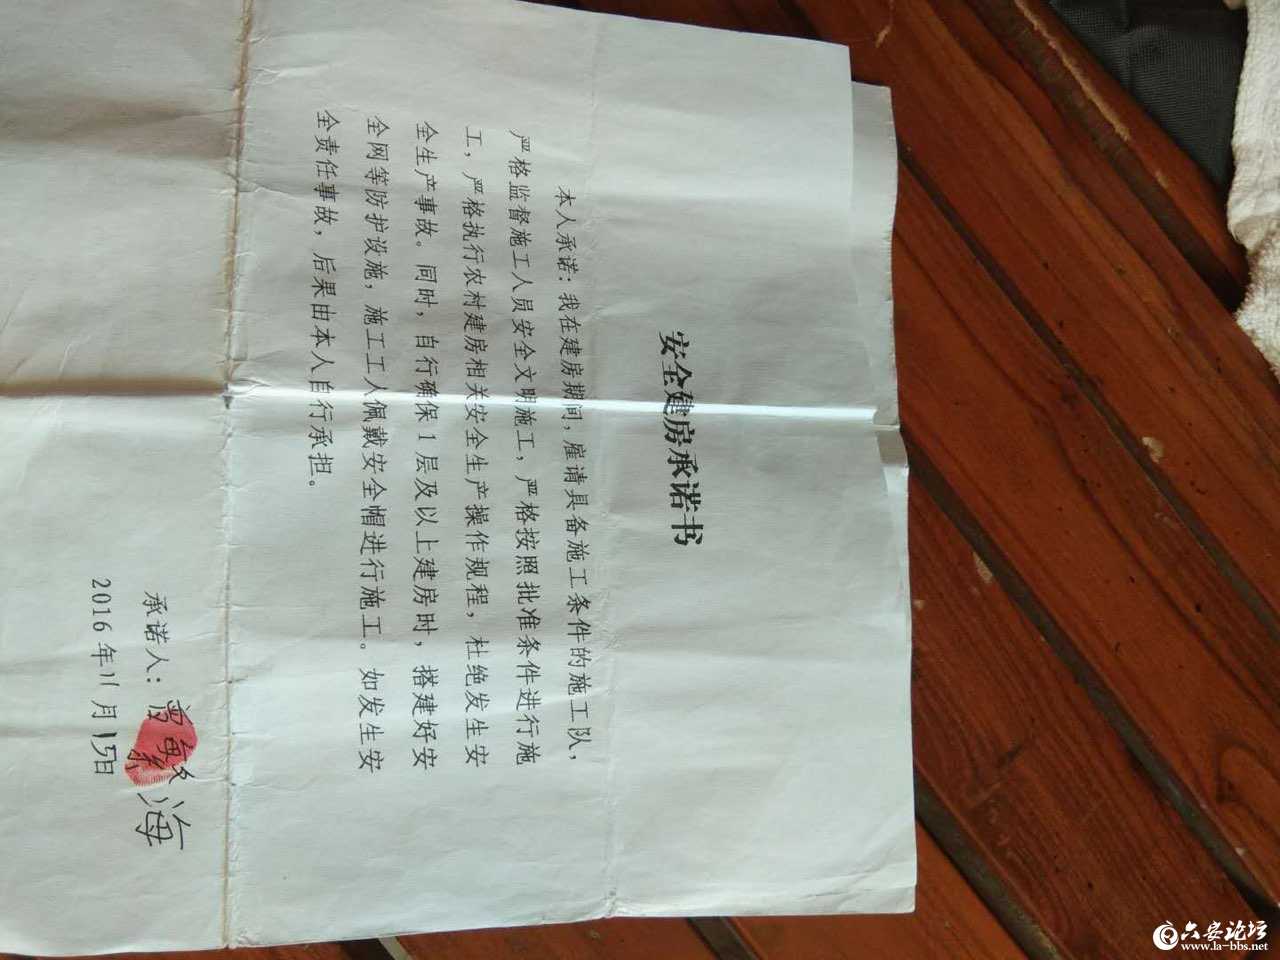 安全建房承诺书
本人承诺：我在建房期间，雇请具备施工条件的施工队，
严格监督施工人员安全文明施工，严格按照批准条件进行施
工，严格执行农村建房相关安全生产操作规程，杜绝发生安
全生产事故。同时，自行确保1层及以上建房时，搭建好安
全网等防护设施，施工工人佩戴安全帽进行施工。如发生安
全责任事故，后果由本人自行承担。
承诺人：曾繁海
2016年11月15日
六安论坛
www.la-bbs.net